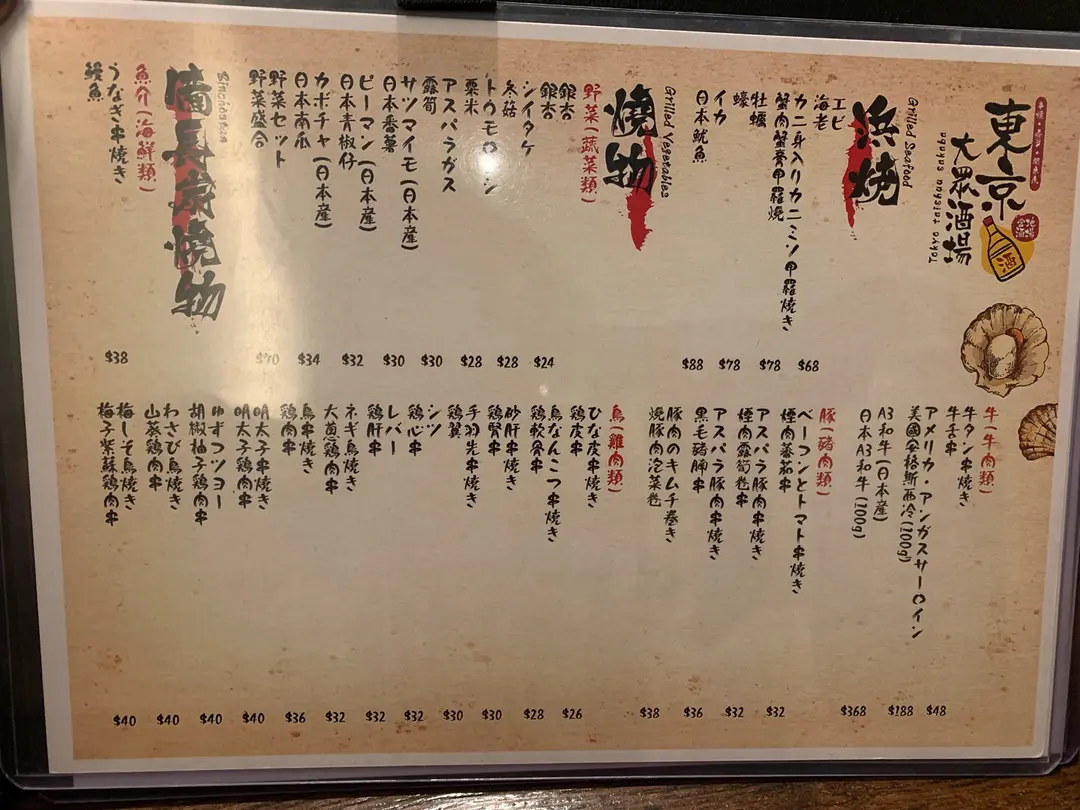 東京
大眾酒場
Tokyo Taishou Sakaba
酒
浜焼
Grilled Seafood
エビ
海老
$68
カニ身入りカニミソ甲羅焼き
蟹肉蟹膏甲羅燒
$78
牡蠣
蠔
$78
イカ
日本魷魚
$88
燒物
Grilled Vegetables
野菜(蔬菜類)
銀杏
銀杏
$24
シイタケ
冬菇
$28
トウモロコシ
粟米
$28
アスパラガス
露筍
$30
サツマイモ(日本産)
日本番薯
$30
ピーマン(日本産)
日本青椒仔
$32
カボチャ(日本産)
日本南瓜
$34
野菜セット
野菜盛合
$70
備長炭燒物
Binchoutan
魚介(海鮮類)
うなぎ串燒き
鰻魚
$38
牛(牛肉類)
牛タン串燒き
牛舌串
$48
アメリカ・アンガスサーロイン
美國安格斯西冷(200g)
$188
A3和牛(日本産)
日本A3和牛(200g)
$368
豚(豬肉類)
ベーコンとトマト串燒き
煙肉蕃茄串
$32
アスパラ豚肉串燒き
煙肉露筍卷串
$32
アスパラ豚肉串燒き
黒毛豬腩串
$36
豚肉のキムチ巻き
燒豚肉泡菜卷
$38
鳥(雞肉類)
ひな皮串燒き
鶏皮串
$26
鳥なんこつ串燒き
鶏軟骨串
$28
砂肝串燒き
鶏腎串
$30
手羽先串燒き
鶏翼
$30
シツ
鶏心串
$32
レバー
鶏肝串
$32
ネギ鳥燒き
大蔥鶏肉串
$32
鳥串燒き
鶏肉串
$36
明太子串燒き
明太子鶏肉串
$40
ゆずコツョー
胡椒柚子鶏肉串
$40
わさび鳥燒き
山葵鶏肉串
$40
梅しそ鳥燒き
梅子紫蘇鶏肉串
$40